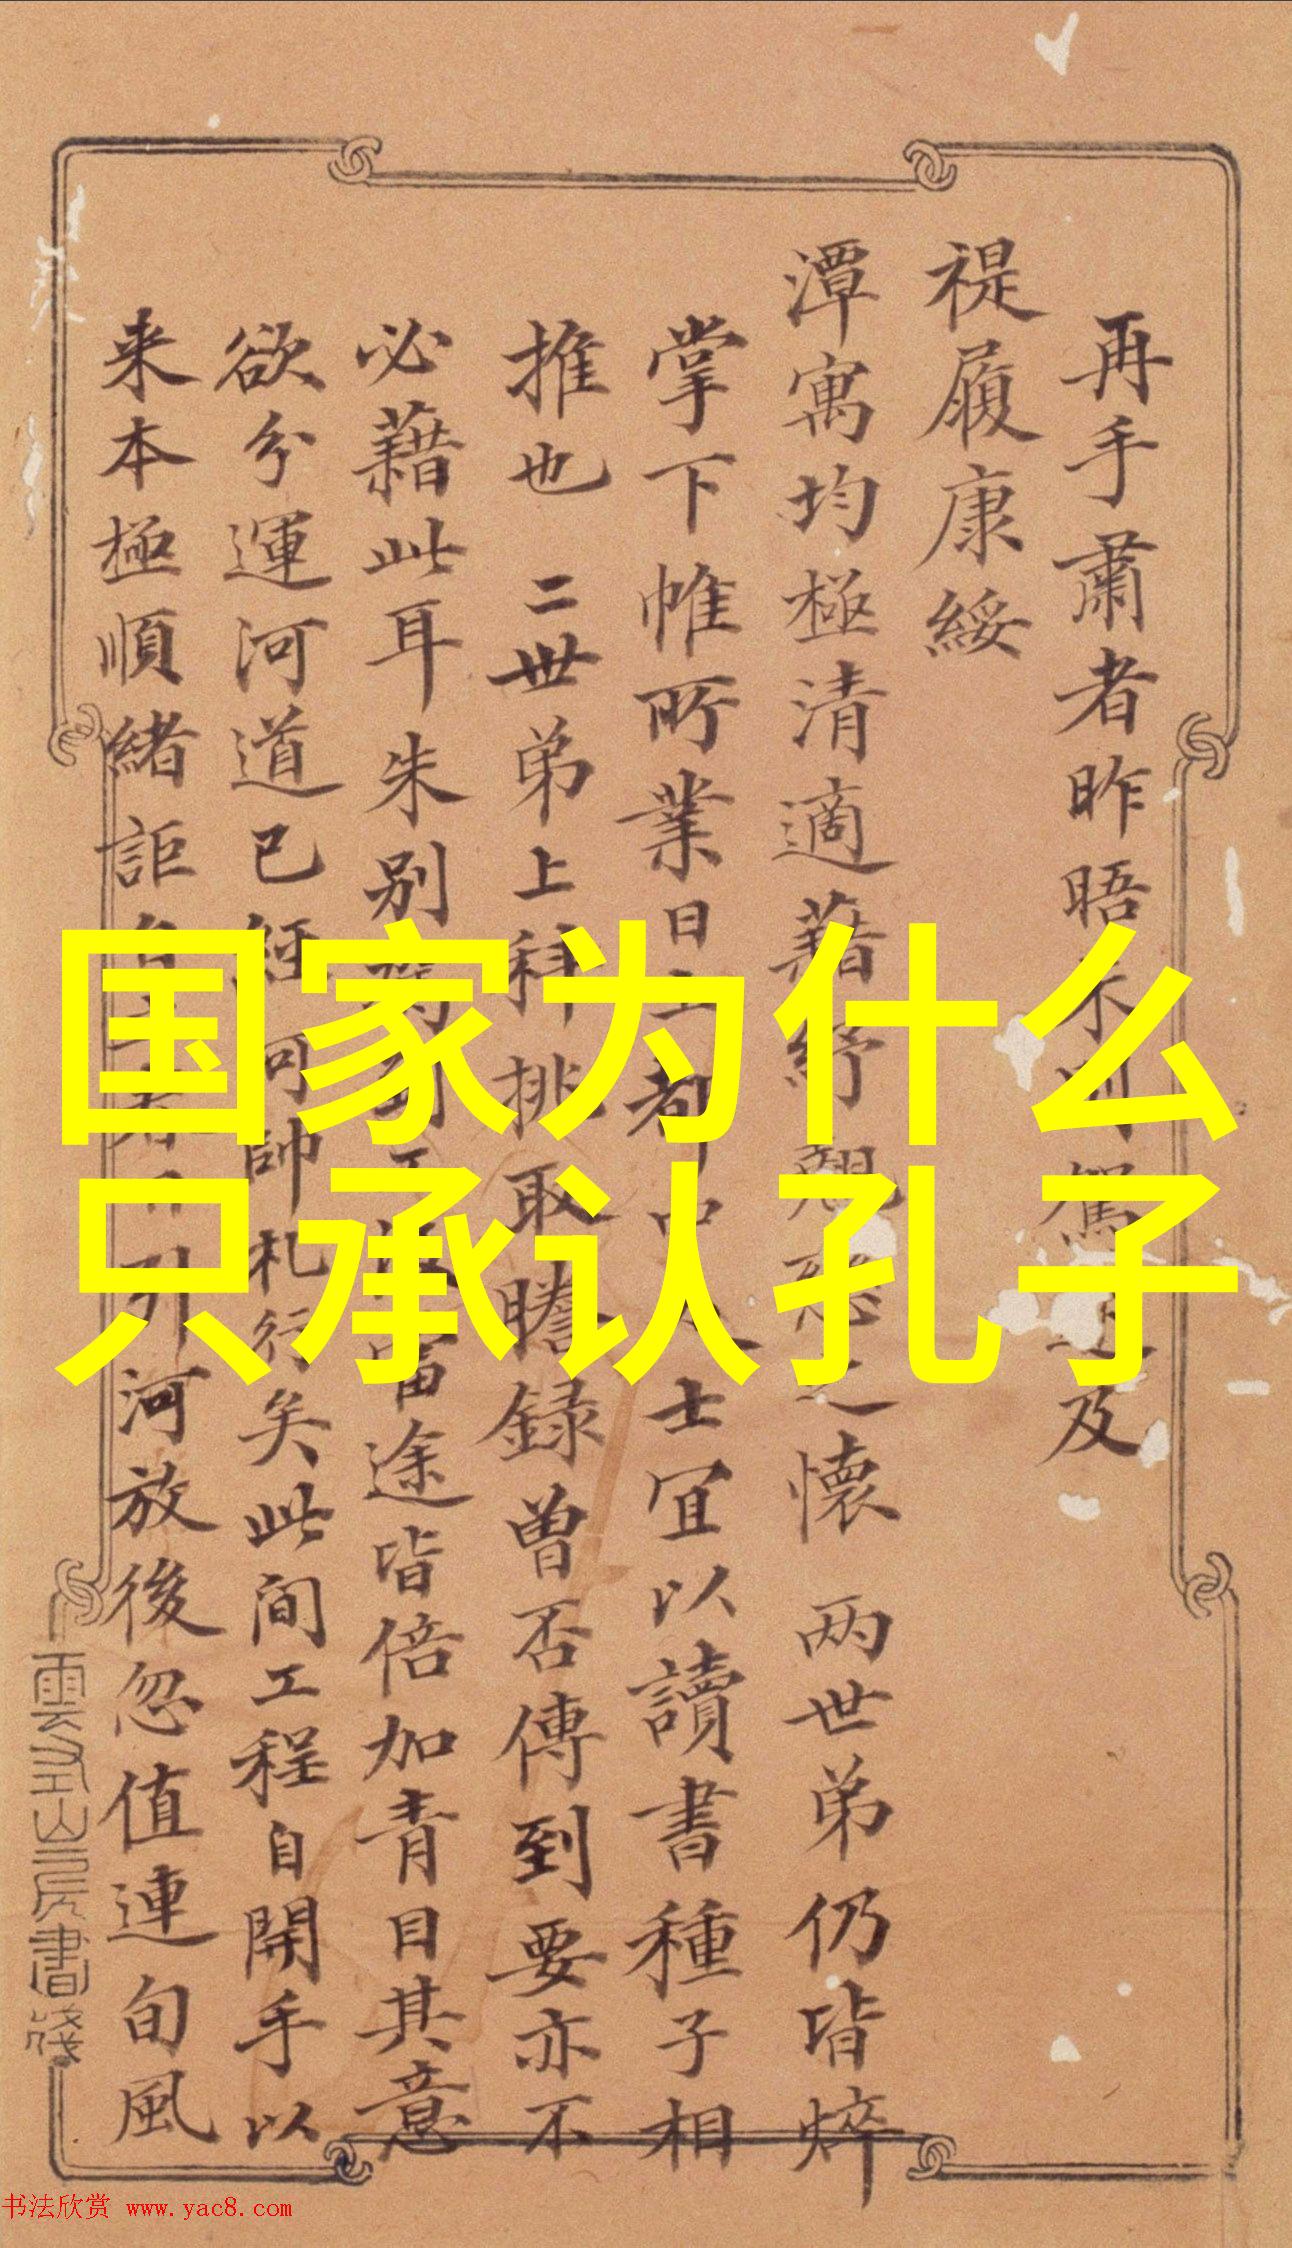 国家为什么
只承认孔子
再手肅者昨晤不及
禔履康綏
潭寓均極清適藉紓之懷 两世弟仍皆焠
掌下帷所業日上都中人士宜以讀書種子相
推也 二世弟上科挑取謄録曾否傳到要亦不
必藉此耳朱别富途皆倍加青目其意
欲分運河道已經河帥札行矣此间工程自開手以
来本極順緒詎河放後忽值連旬風
雲山房書箋
书法欣赏 www.yac8.com